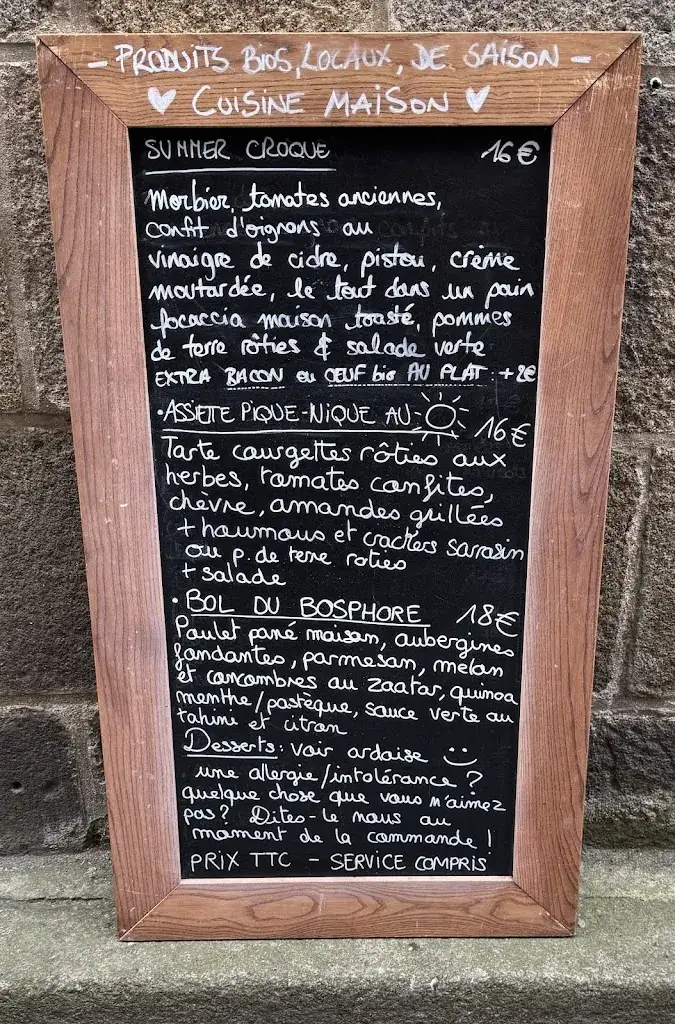 - PRODUITS BIOS, LOCAUX, DE SAISON -
♥ CUISINE MAISON ♥
SUMMER CROQUE 16€
Morbier, tomates anciennes,
confit d'oignons au
vinaigre de cidre, pistou, crème
moutardée, le tout dans un pain
focaccia maison toasté, pommes
de terre rôties & salade verte
EXTRA BACON ou OEUF bio AU PLAT : +2€
• ASSIETTE PIQUE-NIQUE AU ☀ 16€
Tarte courgettes rôties aux
herbes, tomates confites,
chèvre, amandes grillées
+ houmous et crackers sarrasin
ou p. de terre roties
+ salade
• BOL DU BOSPHORE 18€
Poulet pané maison, aubergines
fondantes, parmesan, melon
et concombres au zaatar, quinoa
menthe/pastèque, sauce verte au
tahini et citron
Desserts : voir ardoise :)
une allergie/intolérance ?
quelque chose que vous n'aimez
pas ? Dites-le nous au
moment de la commande !
PRIX TTC - SERVICE COMPRIS